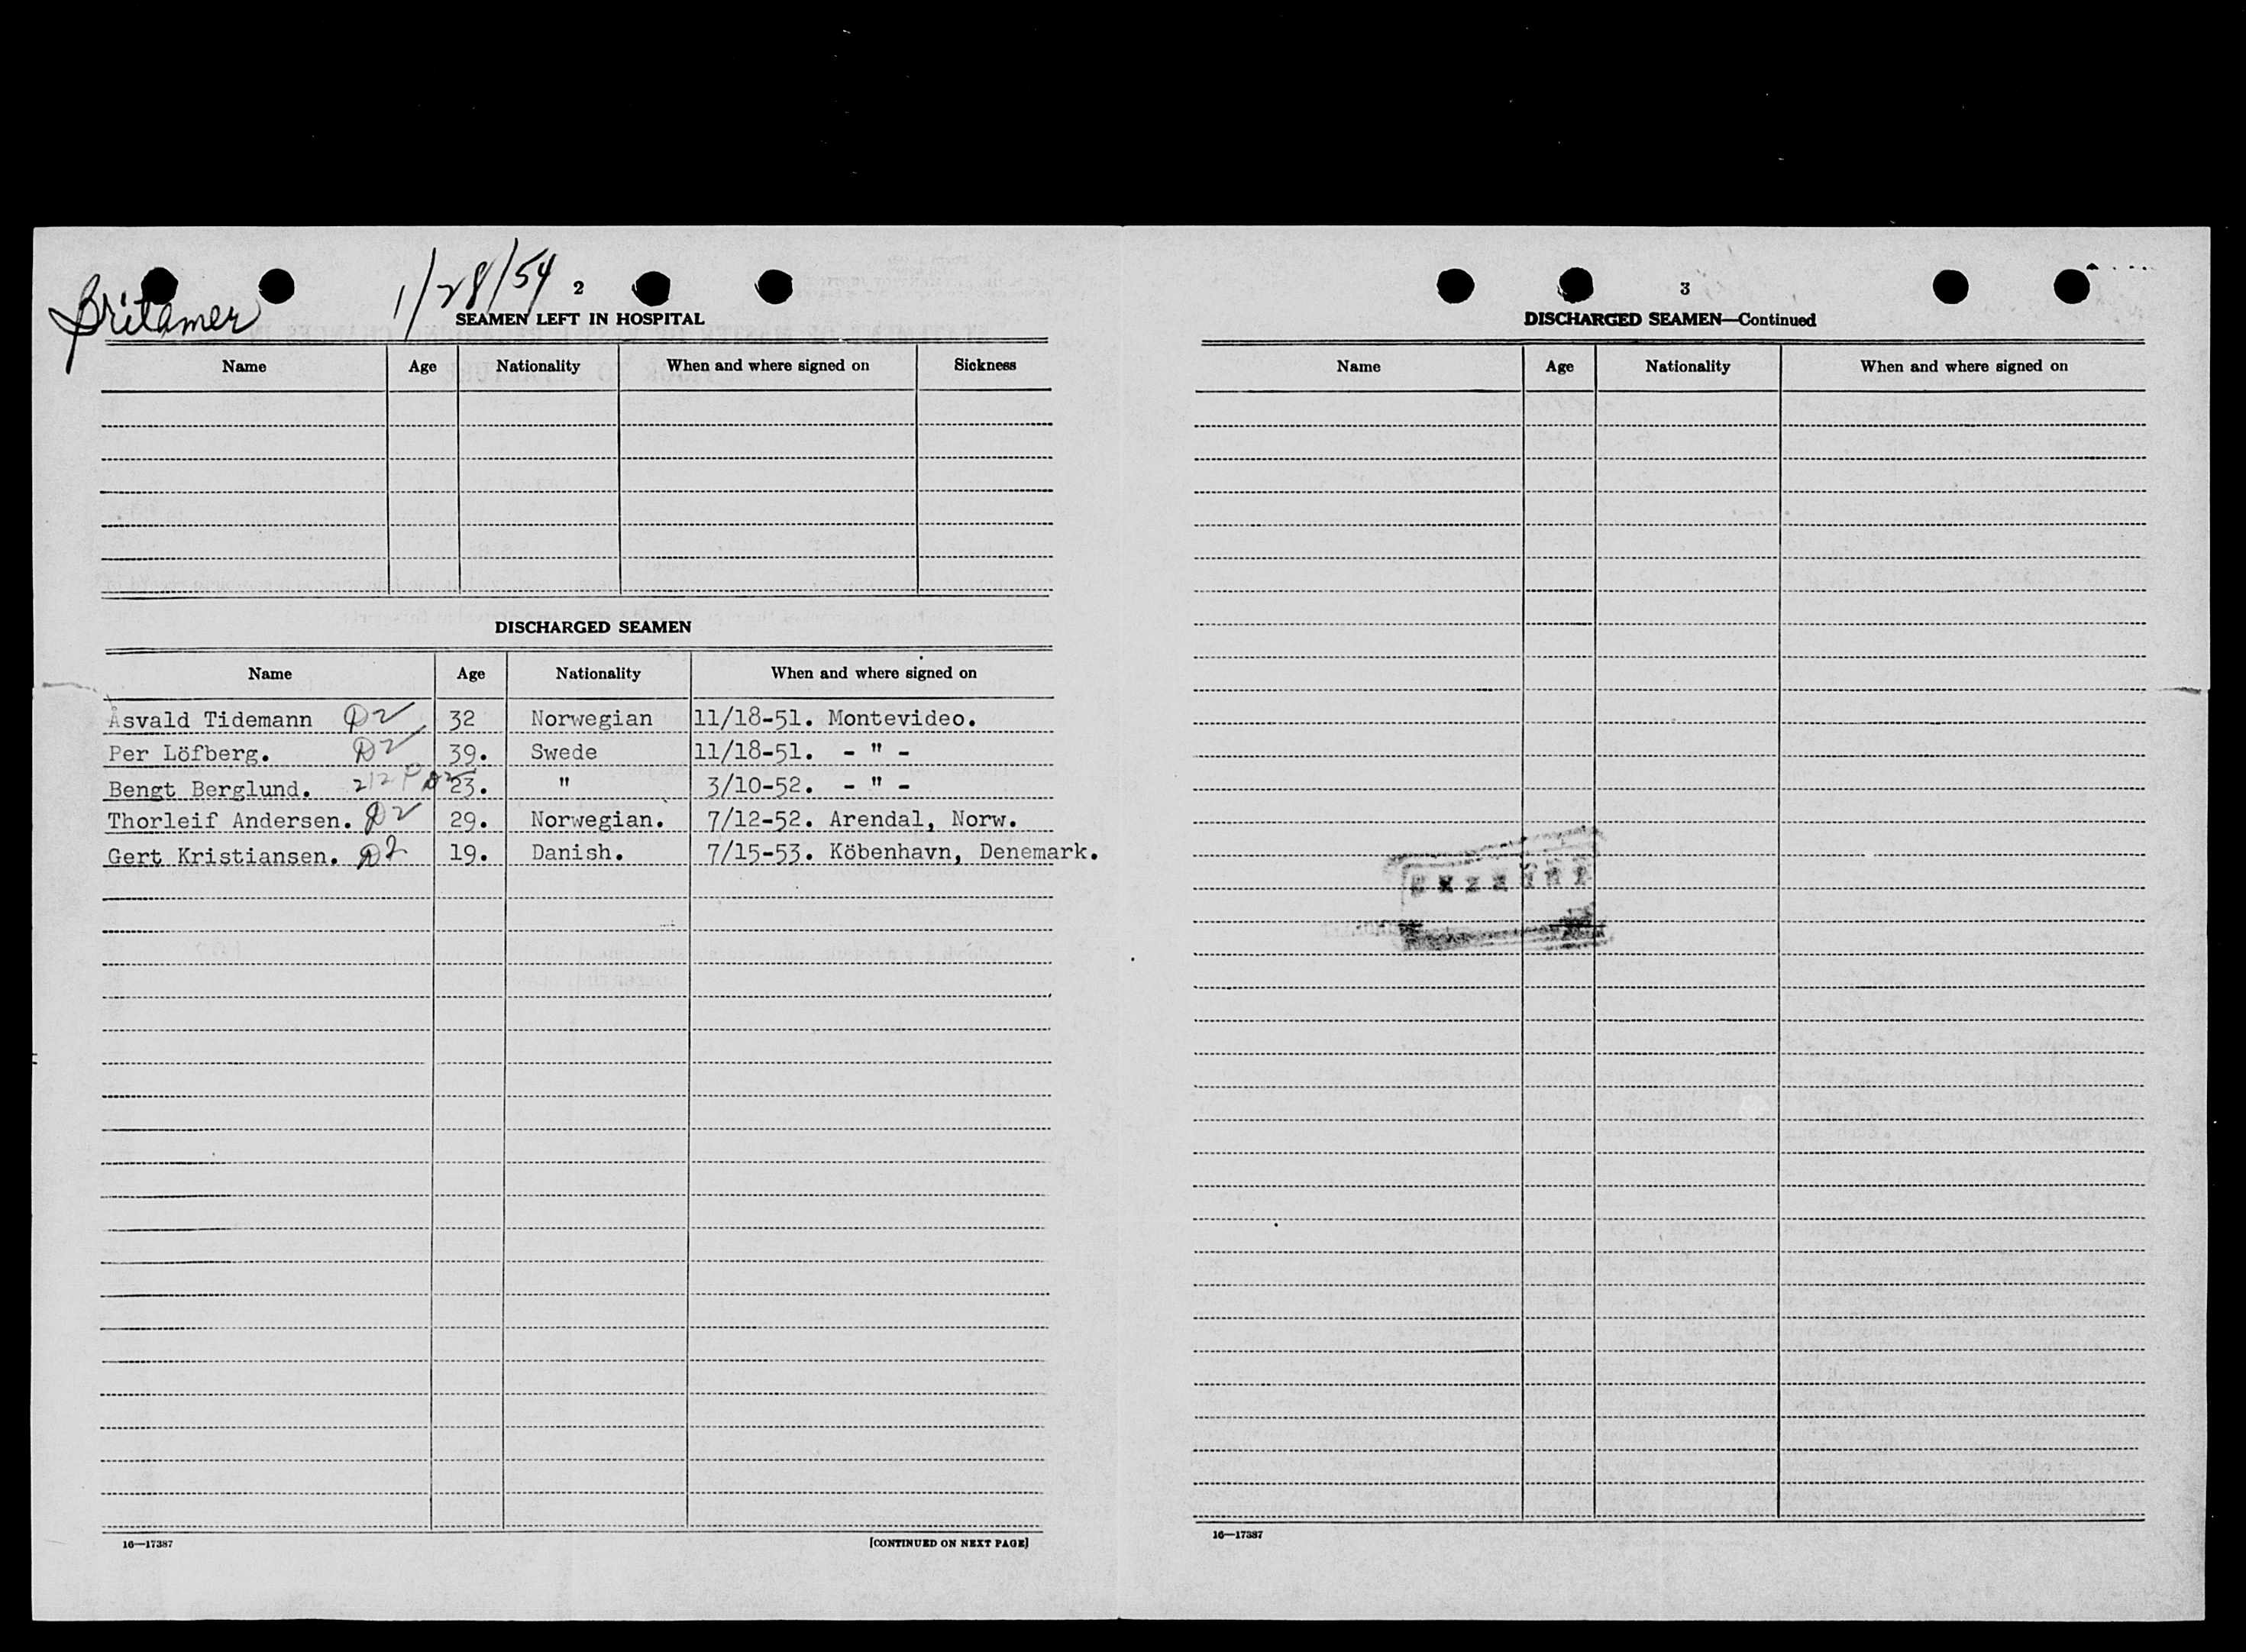 Britamer
1/28/54
2
SEAMEN LEFT IN HOSPITAL
Name Age Nationality When and where signed on Sickness
DISCHARGED SEAMEN
Name Age Nationality When and where signed on
Åsvald Tidemann D2 32 Norwegian 11/18-51. Montevideo.
Per Löfberg. D2 39. Swede 11/18-51. - " -
Bengt Berglund. 212 P D2 23. " 3/10-52. - " -
Thorleif Andersen. D2 29. Norwegian. 7/12-52. Arendal, Norw.
Gert Kristiansen. D2 19. Danish. 7/15-53. Köbenhavn, Denemark.
16—17387 [CONTINUED ON NEXT PAGE]
3
DISCHARGED SEAMEN—Continued
Name Age Nationality When and where signed on
16—17387